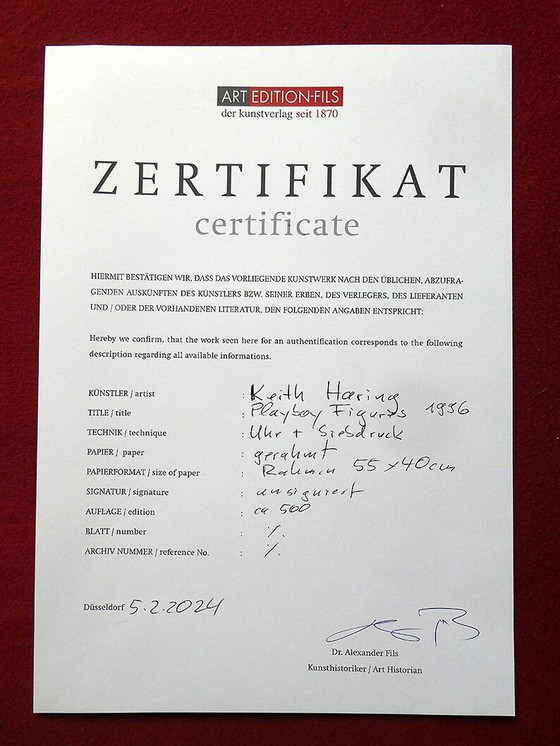 ART EDITION-FILS
der kunstverlag seit 1870
ZERTIFIKAT
certificate
HIERMIT BESTÄTIGEN WIR, DASS DAS VORLIEGENDE KUNSTWERK NACH DEN ÜBLICHEN, ABZUFRA-
GENDEN AUSKÜNFTEN DES KÜNSTLERS BZW. SEINER ERBEN, DES VERLEGERS, DES LIEFERANTEN
UND / ODER DER VORHANDENEN LITERATUR, DEN FOLGENDEN ANGABEN ENTSPRICHT:
Hereby we confirm, that the work seen here for an authentification corresponds to the following
description regarding all available informations.
KÜNSTLER / artist : Keith Haring
TITLE / title : Playboy Figures 1996
TECHNIK / technique : Uhr + Siebdruck
PAPIER / paper : gerahmt
PAPIERFORMAT / size of paper : Rahmen 55 x 40 cm
SIGNATUR / signature : unsigniert
AUFLAGE / edition : ca 500
BLATT / number : ./.
ARCHIV NUMMER / reference No. : ./.
Düsseldorf 5.2.2024
Dr. Alexander Fils
Kunsthistoriker / Art Historian